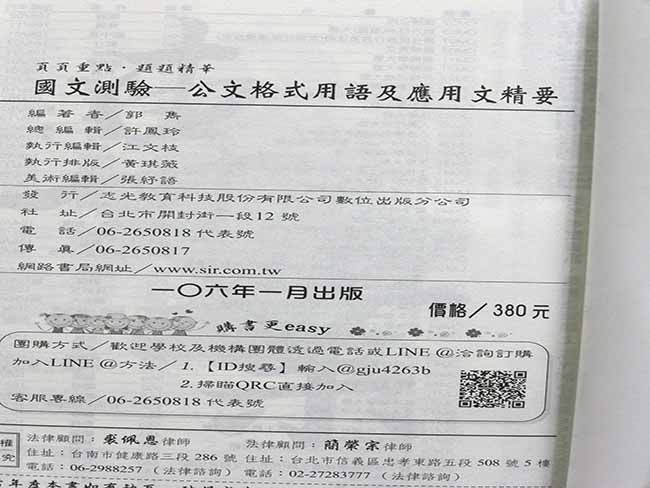 頁頁重點・題題精華
國文測驗—公文格式用語及應用文精要
編著者／郭雋
總編輯／許鳳玲
執行編輯／江文枝
執行排版／黃琪薇
美術編輯／張紓語
發行／志光教育科技股份有限公司數位出版分公司
社址／台北市開封街一段12號
電話／06-2650818 代表號
傳真／06-2650817
網路書局網址／www.sir.com.tw
一〇六年一月出版
價格／380元
購書更easy
團購方式／歡迎學校及機構團體透過電話或LINE @洽詢訂購
加入LINE @方法／1.【ID搜尋】輸入@gju4263b
2.掃瞄QRC直接加入
客服專線／06-2650818 代表號
權
究
法律顧問：裘佩恩律師 法律顧問：簡榮宗律師
住址：台南市健康路三段 286 號 住址：台北市信義區忠孝東路五段 508 號 5 樓
電話：06-2988257（法律諮詢） 電話：02-27283777（法律諮詢）